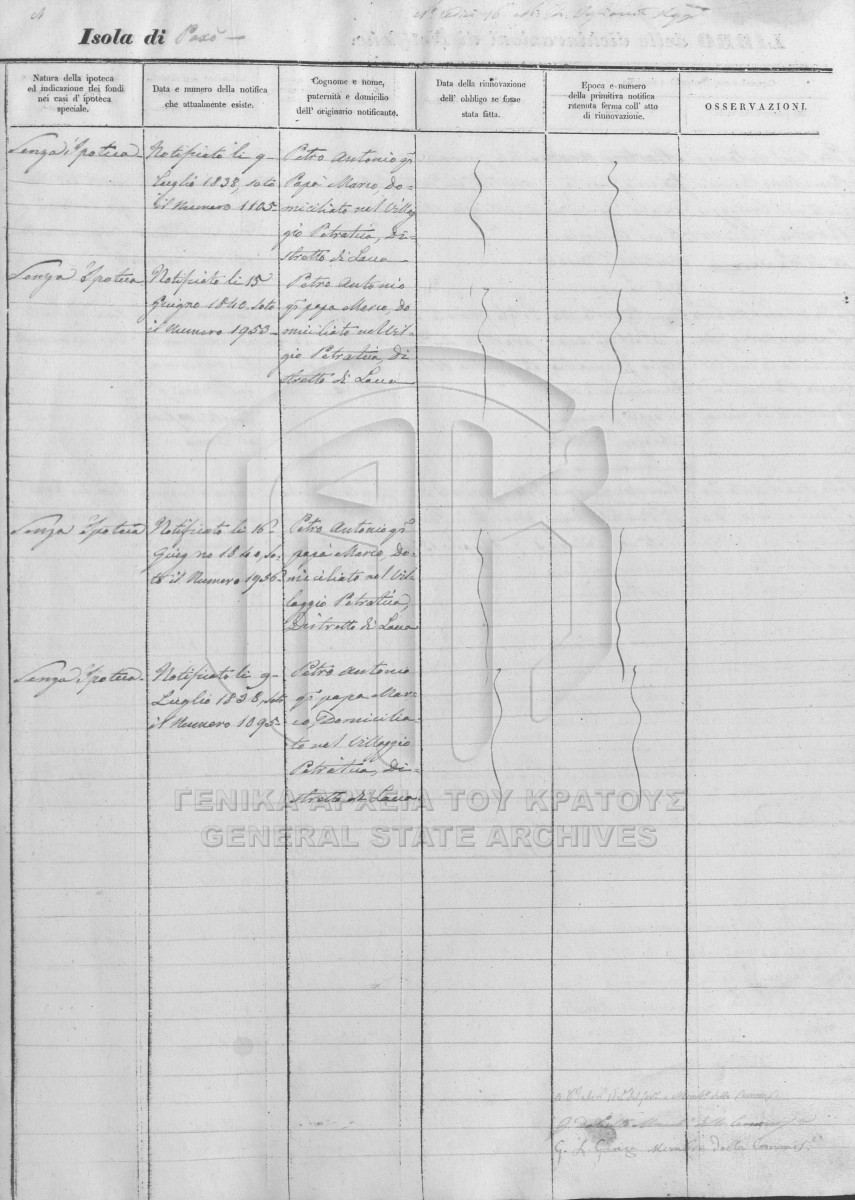 Isola di Paxò
Natura della ipoteca
ed indicazione dei fondi
nei casi d' ipoteca
speciale.
Data e numero della notifica
che attualmente esiste.
Cognome e nome,
paternità e domicilio
dell' originario notificante.
Data della rinnovazione
dell' obbligo se fosse
stata fatta.
Epoca e numero
della primitiva notifica
ritenuta ferma coll' atto
di rinnovazione.
OSSERVAZIONI.
Senza Ipoteca
Notificato li 9
Luglio 1838, soto
il Numero 1105
Petro Antonio qm
Papà Marco, Do-
miciliato nel Villag-
gio Petratià, Di-
stretto di Lacca
Senza Ipoteca
Notificato li 15
Giugno 1840, soto
il Numero 1953
Petro Antonio
qm papa Marco, Do
miciliato nel Vil-
gio Petratià, Di
stretto di Lacca
Senza Ipoteca
Notificato li 16
Giugno 1840, so-
to il Numero 1956
Petro Antonio qm
papà Marco, Do-
miciliato nel Vil-
laggio Petratià,
Distretto di Lacca
Senza Ipoteca
Notificato li 9
Luglio 1838, soto
il Numero 1095
Petro Antonio
qm papa Mar-
co, Domicilia-
to nel Villaggio
Petratià, Di-
stretto di Lacca
ΓΕΝΙΚΑ ΑΡΧΕΙΑ ΤΟΥ ΚΡΑΤΟΥΣ
GENERAL STATE ARCHIVES
Membro della